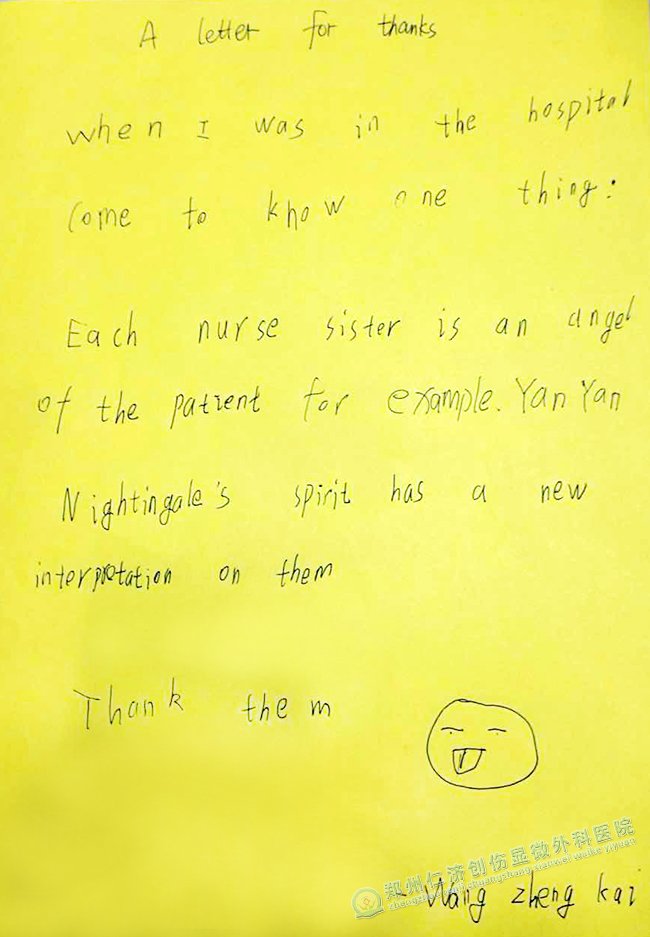 A letter for thanks
when I was in the hospital
come to know one thing:
Each nurse sister is an angel
of the patient for example. Yan Yan
Nightingale's spirit has a new
interpretation on them
Thank them
郑州仁济创伤显微外科医院
zhengzhou renji chuangshang xianwei waike yiyuan
Wang zheng kai